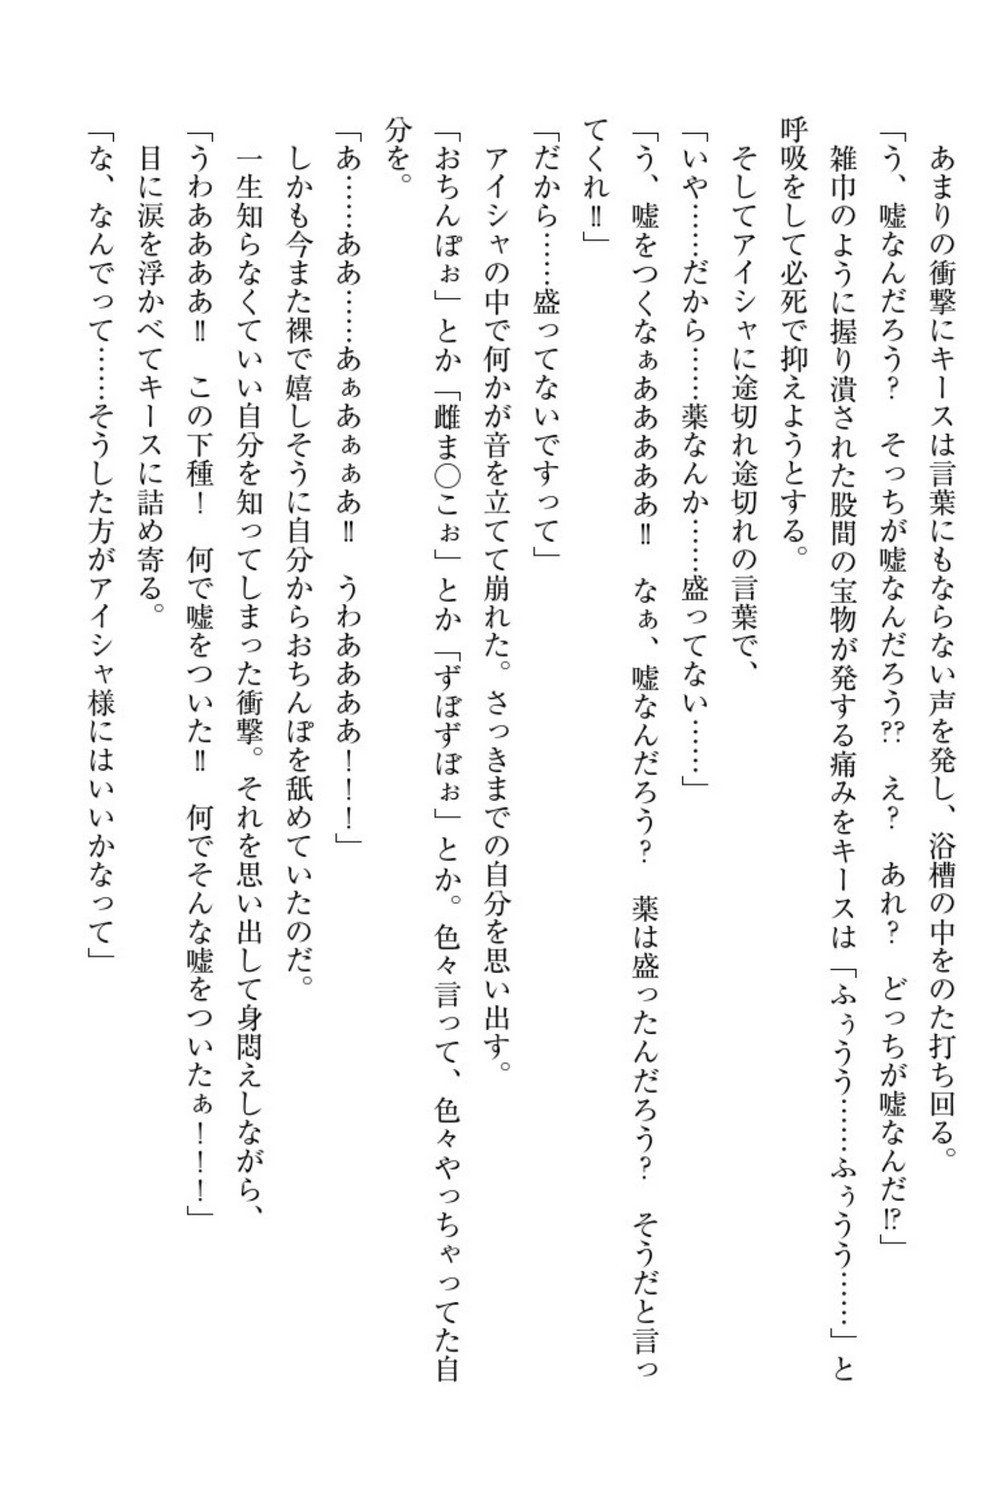 あまりの衝撃にキースは言葉にもならない声を発し、浴槽の中をのた打ち回る。
「う、嘘なんだろう？　そっちが嘘なんだろう??　え？　あれ？　どっちが嘘なんだ!?」
　雑巾のように握り潰された股間の宝物が発する痛みをキースは「ふぅうう……ふぅうう……」と
呼吸をして必死で抑えようとする。
　そしてアイシャに途切れ途切れの言葉で、
「いや……だから……薬なんか……盛ってない……」
「う、嘘をつくなぁああああ‼　なぁ、嘘なんだろう？　薬は盛ったんだろう？　そうだと言っ
てくれ‼」
「だから……盛ってないですって」
　アイシャの中で何かが音を立てて崩れた。さっきまでの自分を思い出す。
「おちんぽぉ」とか「雌ま〇こぉ」とか「ずぼずぼぉ」とか。色々言って、色々やっちゃってた自
分を。
「あ……ああ……あぁあぁぁあ‼　うわああああ！！！」
　しかも今また裸で嬉しそうに自分からおちんぽを舐めていたのだ。
　一生知らなくていい自分を知ってしまった衝撃。それを思い出して身悶えしながら、
「うわああああ‼　この下種！　何で嘘をついた‼　何でそんな嘘をついたぁ！！！」
　目に涙を浮かべてキースに詰め寄る。
「な、なんでって……そうした方がアイシャ様にはいいかなって」